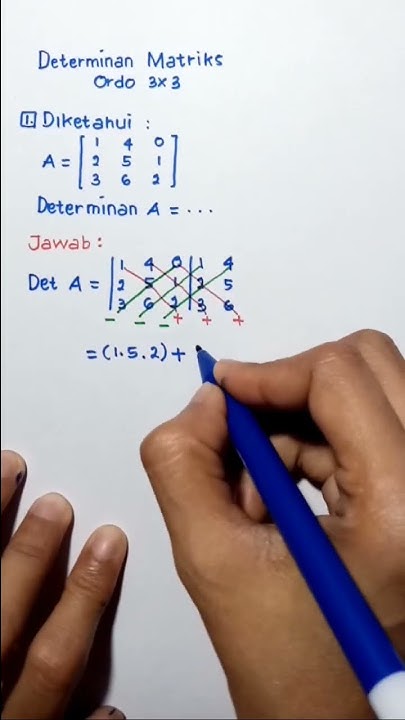 Determinan Matriks
Ordo 3x3
1. Diketahui :
A = [ 1 4 0
2 5 1
3 6 2 ]
Determinan A = ...
Jawab :
Det A = | 1 4 0 | 1 4
2 5 1 | 2 5
3 6 2 | 3 6
- - - + + +
= (1.5.2) +